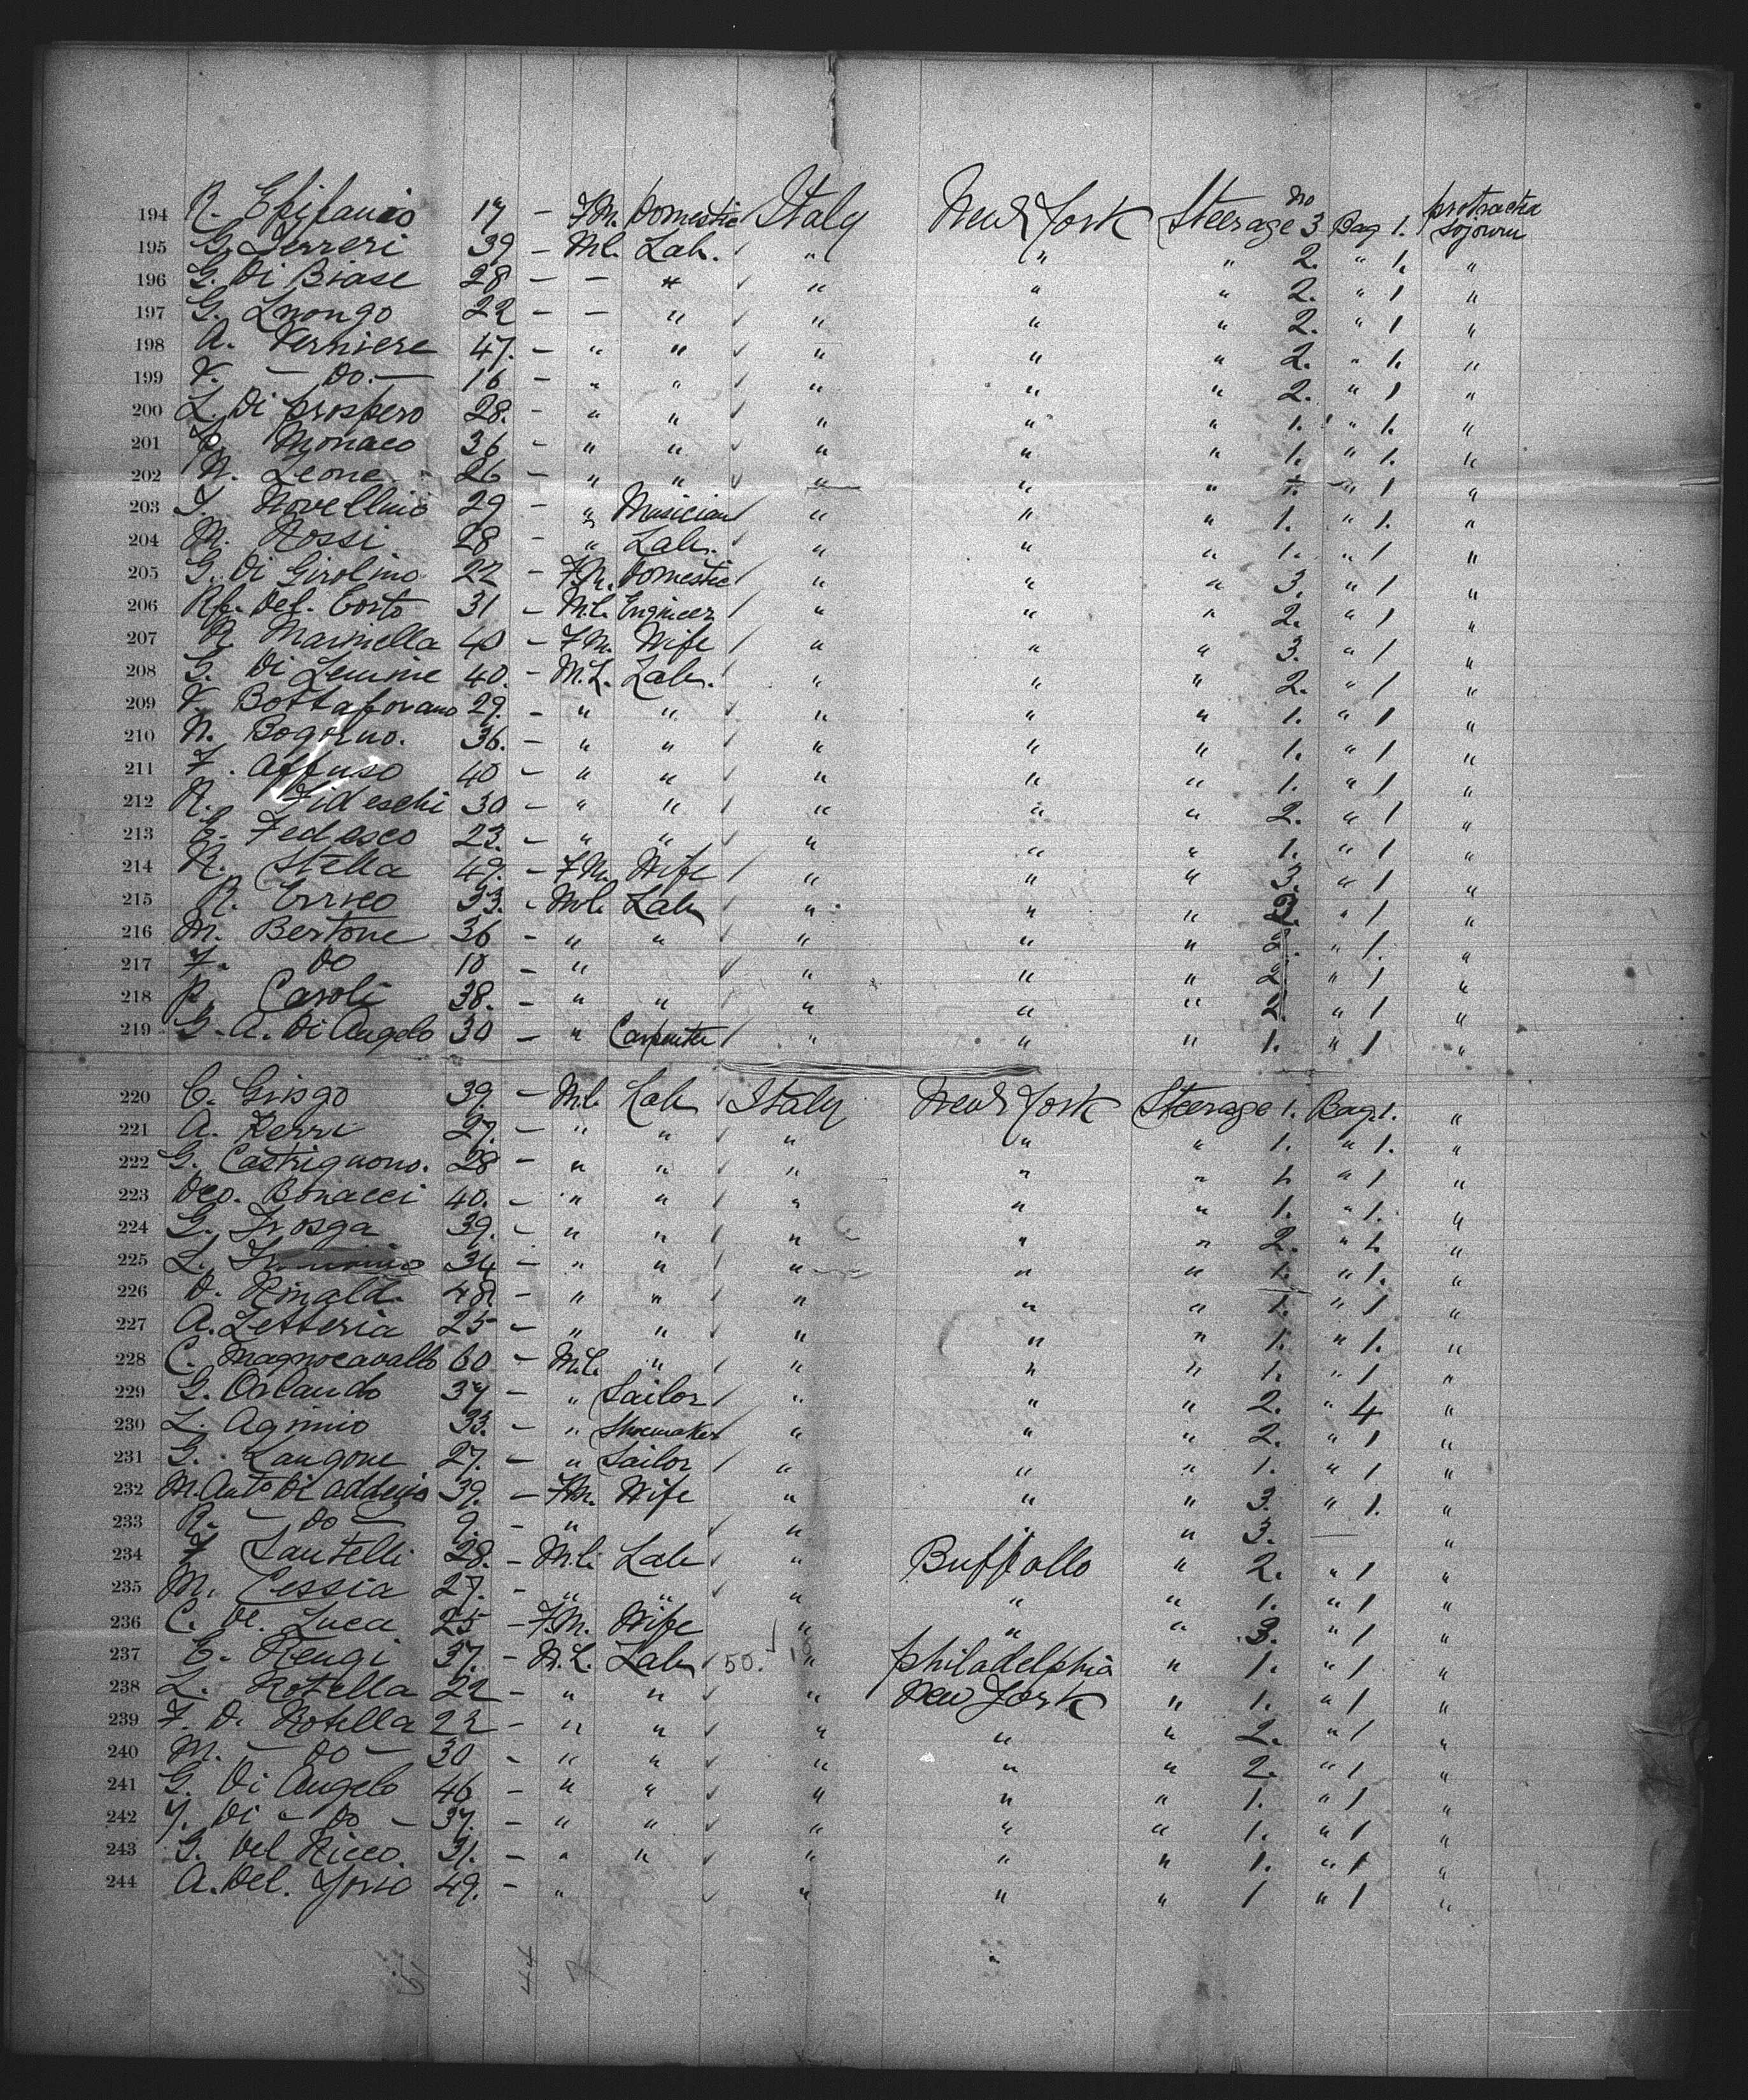 194 R. Epifanio 17 — Fm. Domestic Italy New York Steerage No 3 Bag 1. protracted sojourn
195 G. Ferreri 39 — Ml. Lab. " " " 2. " 1. "
196 G. Di Biase 28 — — " " " " 2. " 1 "
197 G. Luongo 22 — — " " " " 2. " 1 "
198 A. Verniere 47. — " " " " " 2. " 1. "
199 V. — Do. — 16 — " " " " " 2. " 1 "
200 L. Di Prospero 28. — " " " " " 1. " 1. "
201 Monaco 36 — " " " " " 1. " 1. "
202 N. Leone 26 — " " " " " 1. " 1 "
203 Novellino 29 — " Musician " " " 1. " 1. "
204 M. Rossi 28 — " Lab. " " " 1. " 1 "
205 G. Di Girolmo 22 — Fm. Domestic " " " 3. " 1 "
206 Rf. Del. Costo 31 — Ml. Engineer " " " 2. " 1 "
207 R. Marinella 40 — Fm. Wife " " " 3. " 1 "
208 G. Di Lemme 40. — M.L. Lab. " " " 2. " 1 "
209 V. Bottaforano 29. — " " " " " 1. " 1 "
210 N. Bogorno. 36. — " " " " " 1. " 1 "
211 F. Affuso 40 — " " " " " 1. " 1 "
212 R. Tideschi 30 — " " " " " 2. " 1 "
213 Tedesco 23. — " " " " " 1. " 1 "
214 R. Stella 49. — Fm. Wife " " " 3. " 1 "
215 R. Errico 33. — Ml. Lab " " " 2. " 1 "
216 M. Bertone 36 — " " " " " 2. " 1. "
217 F. Do 10 — " " " " 2 " 1 "
218 P. Caroli 38. — " " " " " 2. " 1 "
219 G. A. Di Angelo 30 — " Carpenter " " " 1. " 1 "
220 C. Grisgo 39. — Ml. Lab Italy New York Steerage 1. Bag 1. "
221 A. Ferri 27. — " " " " " 1. " 1. "
222 G. Castrignono. 28 — " " " " " 1. " 1 "
223 Dco. Bonacci 40. — " " " " " 1. " 1. "
224 G. Frosga 39. — " " " " " 2. " 1. "
225 L. 34 — " " " " " 1. " 1. "
226 D. Rinaldi 48. — " " " " " 1. " 1 "
227 A. Letteria 25 — " " " " " 1. " 1. "
228 C. Magnocavallo 60 — Ml. " " " " 1. " 1 "
229 G. Orlando 37 — " Sailor " " " 2. " 4 "
230 L. Agnnio 33. — " Shoemaker " " " 2. " 1 "
231 G. Langone 27. — " Sailor " " " 1. " 1 "
232 M. Anto Di addezio 39. — Fm. Wife " " " 3. " 1. "
233 R. — Do — 9. — " " " " 3. — "
234 F Santelli 28. — Ml. Lab " Buffallo " 2. " 1 "
235 M. Cessia 27. — " " " " " 1. " 1 "
236 C. De. Luca 25 — Fm. Wife " " " 3. " 1 "
237 Rengi 37. — M.L. Lab 50. " Philadelphia " 1. " 1 "
238 L. Rotella 22 — " " " New York " 1. " 1 "
239 F. D. Rotella 22 — " " " " " 2. " 1 "
240 M. — Do — 30 — " " " " " 2. " 1 "
241 G. Di Angelo 46 — " " " " " 1. " 1 "
242 Di — Do — 37. — " " " " " 1. " 1 "
243 G. Del Ricco. 31. — " " " " " 1. " 1 "
244 A. Del. Yorio 49. — " " " " 1 " 1 "
44